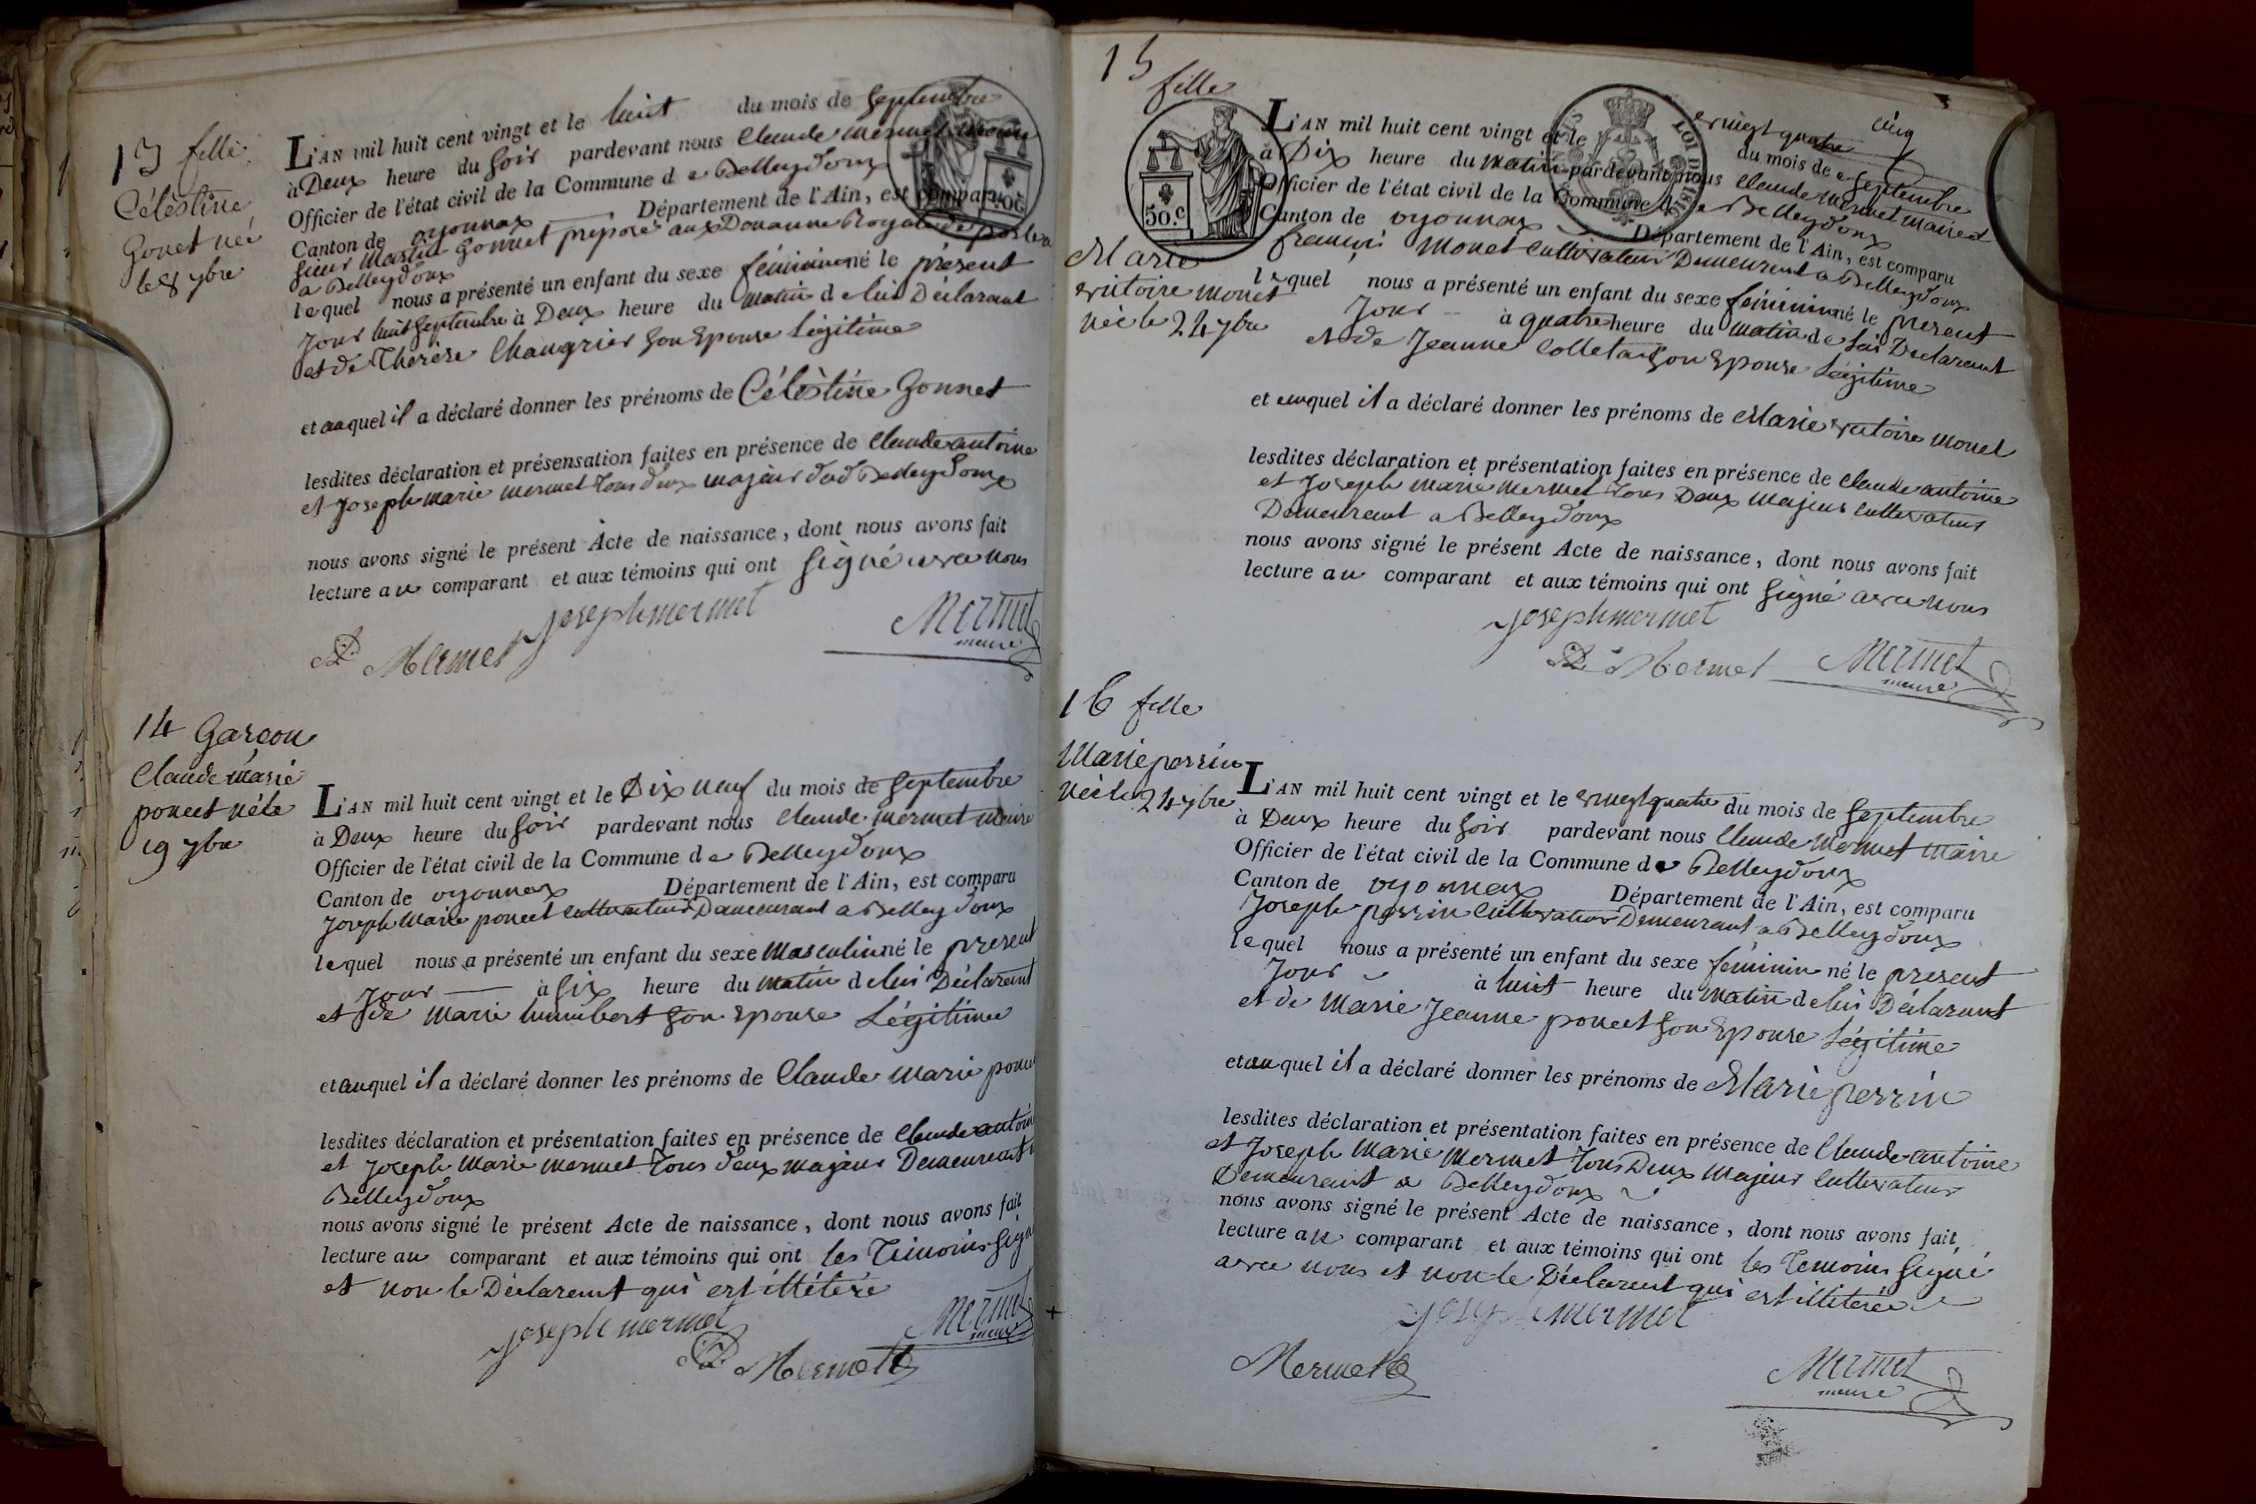 13 fille
Célèstine
Gonet née
le 8 7bre
L'AN mil huit cent vingt et le huit du mois de Septembre
à Deux heure du Soir pardevant nous Claude Mermet Maire
Officier de l'état civil de la Commune de Belleydoux
Canton de oyonnax Département de l'Ain, est comparu
Sieur Martin Gonnet préposé aux Douanne Royale de poste
a Belleydoux
lequel nous a présenté un enfant du sexe féminin né le présent
Jour huit Septembre à Deux heure du Matin de lui Déclarant
et de Thérèse Changrier Son Epouse Légitime
et auquel il a déclaré donner les prénoms de Célèstine Gonnet
lesdites déclaration et présensation faites en présence de Claude antoine
et Joseph Marie Mermet Tous deux majeur Belleydoux
nous avons signé le présent Acte de naissance, dont nous avons fait
lecture au comparant et aux témoins qui ont Signé avec nous
Joseph mermet
Mermet
Mermet
maire
14 Garcon
Claude Marie
poncet né le
19 7bre
L'AN mil huit cent vingt et le Dix neuf du mois de Septembre
à Deux heure du Soir pardevant nous Claude Mermet Maire
Officier de l'état civil de la Commune de Belleydoux
Canton de oyonnax Département de l'Ain, est comparu
Joseph Marie poncet Cultivateur Demeurant a Belleydoux
lequel nous a présenté un enfant du sexe Masculin né le présent
Jour à Six heure du Matin de lui Déclarant
et de Marie humbert Son Epouse Légitime
et auquel il a déclaré donner les prénoms de Claude Marie poncet
lesdites déclaration et présentation faites en présence de Claude antoine
et Joseph Marie Mermet Tous deux majeur Demeurant a
Belleydoux
nous avons signé le présent Acte de naissance, dont nous avons fait
lecture au comparant et aux témoins qui ont les Témoins Signé
et non le Déclarant qui est illétéré
Joseph mermet
Mermet
maire
Mermet
15
fille
50.c
LOI DE 1816
Marie
victoire Monet
née le 24 7bre
cinq
L'AN mil huit cent vingt et le vingt quatre du mois de Septembre
à Dix heure du Matin pardevant nous Claude Mermet Maire
Officier de l'état civil de la Commune de Belleydoux
Canton de oyonnax Département de l'Ain, est comparu
francois Monet Cultivateur Demeurant a Belleydoux
lequel nous a présenté un enfant du sexe féminin né le présent
Jour à quatre heure du Matin de lui Déclarant
et de Jeanne Colletaz Son Epouse Légitime
et auquel il a déclaré donner les prénoms de Marie victoire Monet
lesdites déclaration et présentation faites en présence de Claude antoine
et Joseph Marie Mermet Tous Deux Majeur Cultivateur
Demeurant a Belleydoux
nous avons signé le présent Acte de naissance, dont nous avons fait
lecture au comparant et aux témoins qui ont Signé avec nous
Joseph mermet
Mermet
Mermet
maire
16 fille
Marie perrin
née le 24 7bre
L'AN mil huit cent vingt et le vingt quatre du mois de Septembre
à Deux heure du Soir pardevant nous Claude Mermet Maire
Officier de l'état civil de la Commune de Belleydoux
Canton de oyonnax Département de l'Ain, est comparu
Joseph perrin Cultivateur Demeurant a Belleydoux
lequel nous a présenté un enfant du sexe féminin né le présent
Jour à huit heure du Matin de lui Déclarant
et de Marie Jeanne poncet Son Epouse Légitime
et auquel il a déclaré donner les prénoms de Marie perrin
lesdites déclaration et présentation faites en présence de Claude antoine
et Joseph Marie Mermet Tous Deux Majeur Cultivateur
Demeurant a Belleydoux
nous avons signé le présent Acte de naissance, dont nous avons fait
lecture au comparant et aux témoins qui ont les Temoins Signé
avec nous et non le Déclarant qui est illiteré
Joseph mermet
Mermet
Mermet
maire